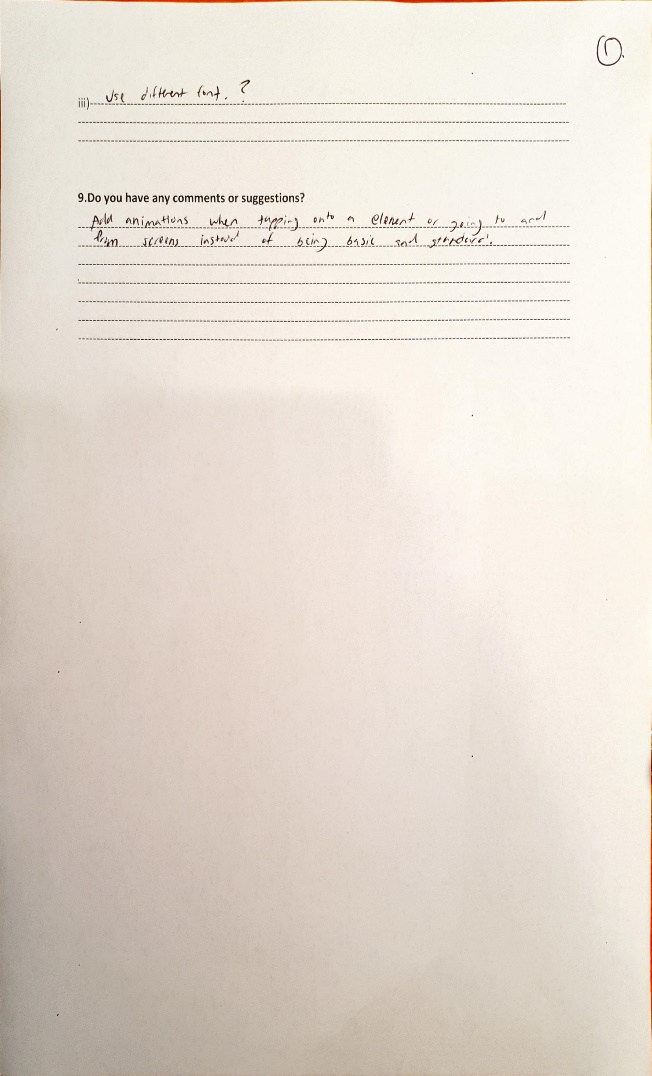 1.
iii) Use different font. ?
9.Do you have any comments or suggestions?
Add animations when tapping onto a element or going to and
from screens instead of being basic and standard.